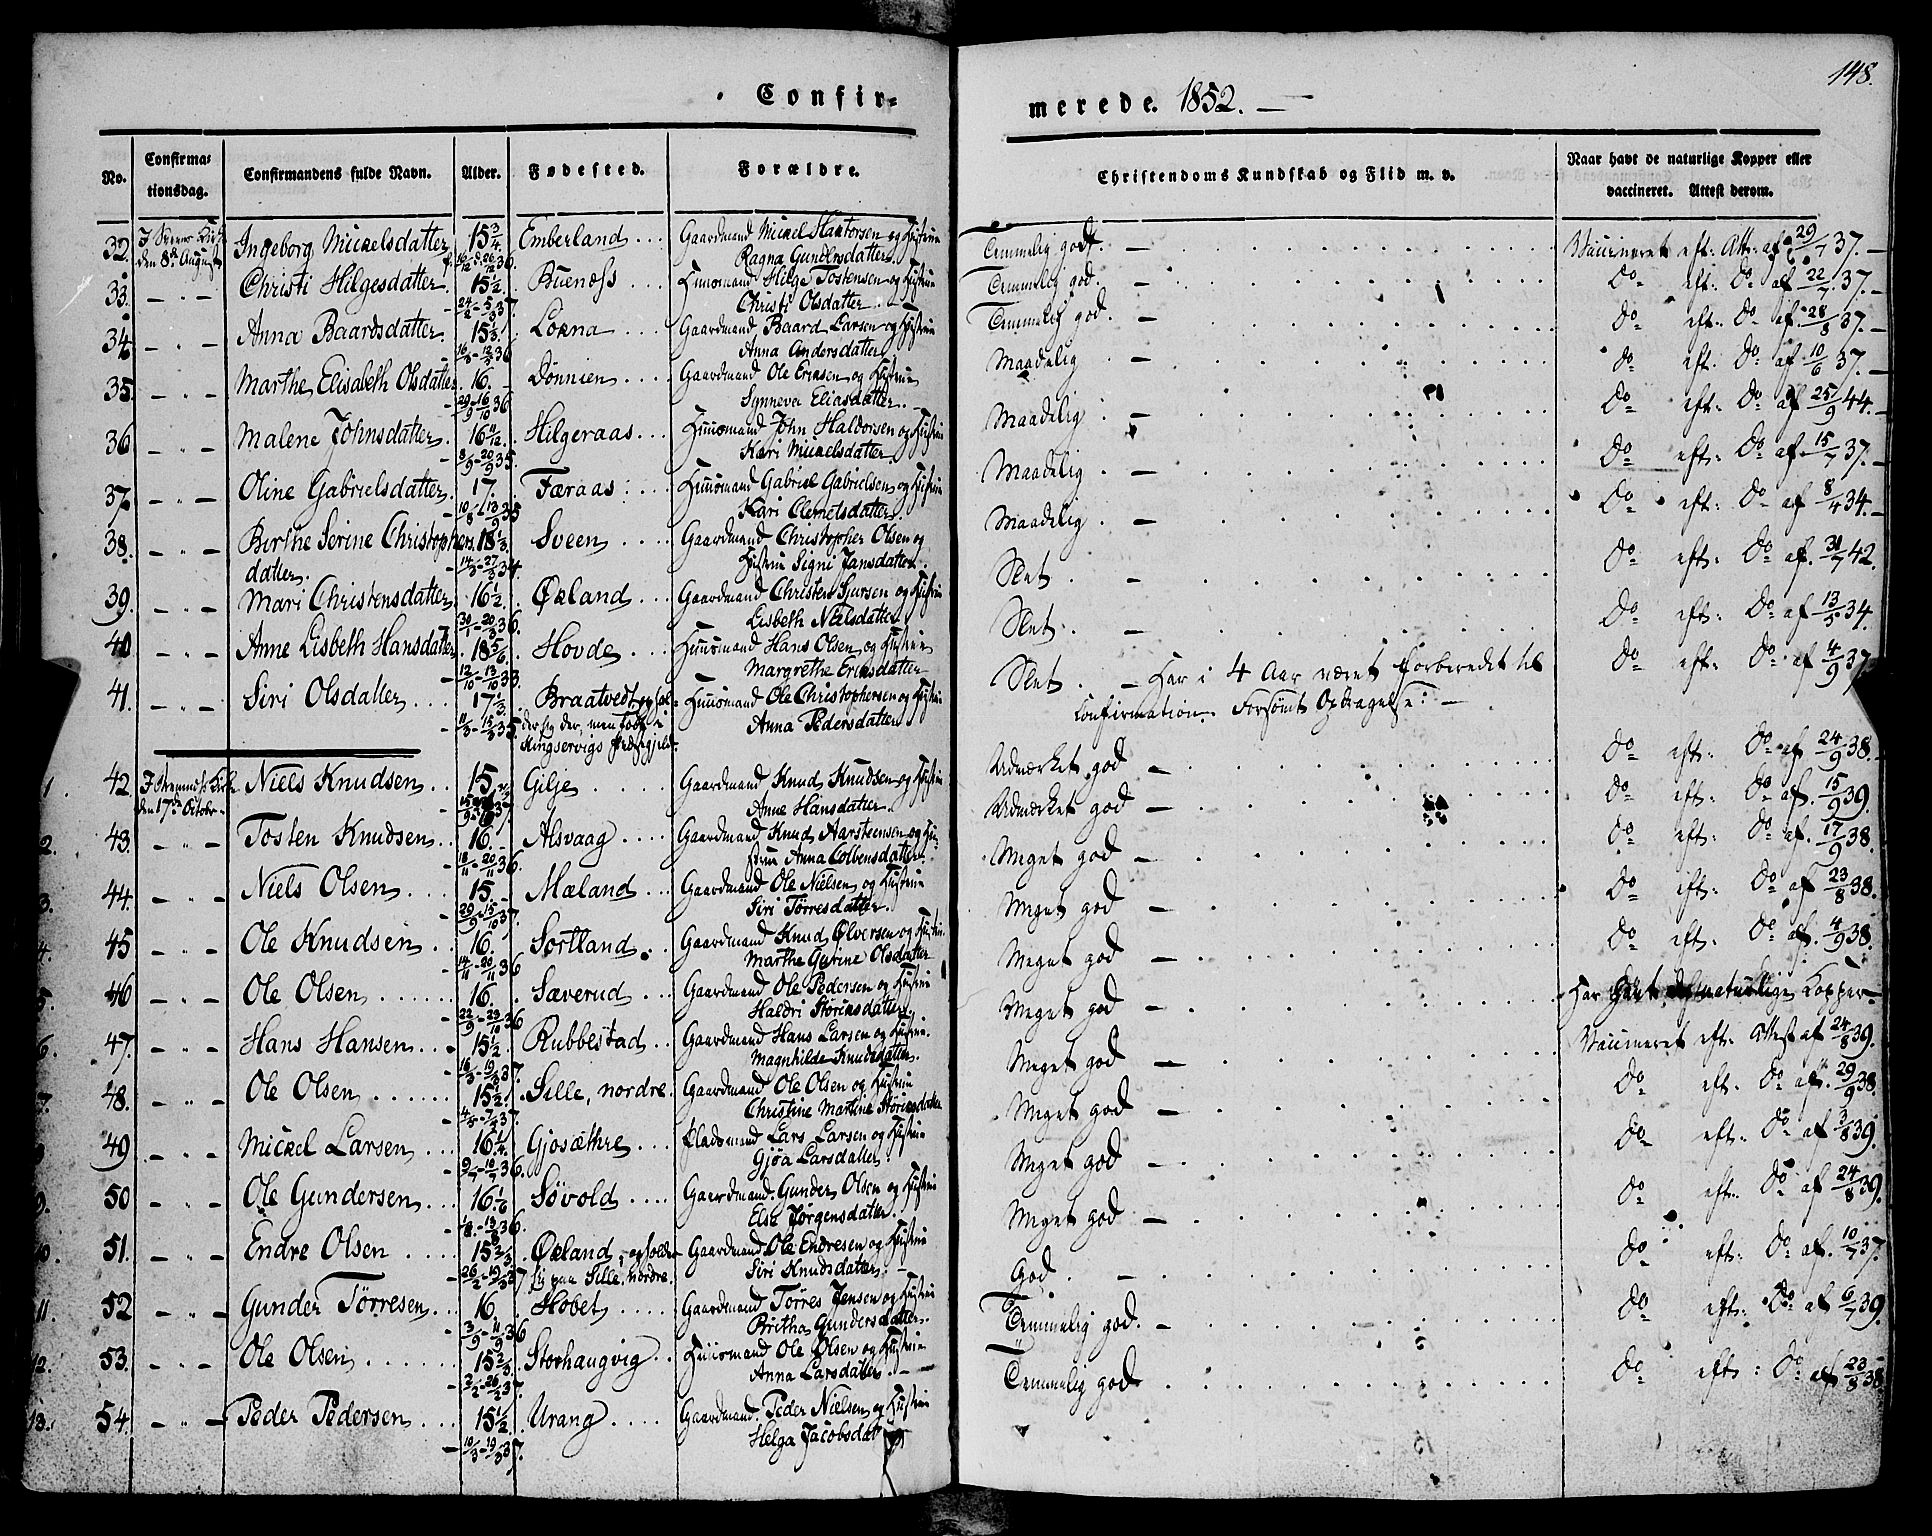 148.
Confir-
merede. 1852.
No.
Confirma-
tionsdag.
Confirmandens fulde Navn.
Alder.
Fødested.
Forældre.
Christendoms Kundskab og Flid m. v.
Naar havt de naturlige Kopper eller
vaccineret. Attest derom.
32. I Sveens Kirke Ingeborg Mickelsdatter 15 3/4. Emberland Gaardmand Mickel og Hustrue Temmelig god. Vaccineret eft: Att: af 29/7 37.
den 8de August Ragna Gundersdatter.
33. Christi Hilgesdatter 15 1/2. Buenæss Huusmand Hilge Tostensen og Hustrue Temmelig god. Do eft: Do af 22/7 37.
Christi Olsdatter.
34. Anna Baardsdatter. 15 1/3. Lokna Gaardmand Baard Larsen og Hustrue Temmelig god. Do eft: Do af 28/8 37.
Anna Andersdatter
35. Marthe Elisabeth Olsdatter 16. Gaardmand Ole Eriksen og Hustrue Maadelig Do eft: Do af 10/6 37.
Synneva Eliasdatter.
36 Malene Johnsdatter. 16 11/12. Hilgeraas Huusmand John Haldorsen og Hustrue Maadelig Do eft: Do af 25/9 44.
Kari Mickelsdatter.
37. Oline Gabrielsdatter. 17. Færaas Huusmand Gabriel Gabrielsen og Hustrue Maadelig Do eft: Do af 15/7 37.
Kari Clemetsdatter.
38. Berthe Serine Christophers 18 1/3. Sveen Gaardmand Christopher Olsen og Maadelig Do eft: Do af 8/4 34.
datter. Hustrue Signi Jansdatter.
39. Mari Christensdatter 16 1/2. Økland Gaardmand Christen Sjursen og Hustrue Slet. Do eft: Do af 31/7 42.
Lisbeth Nielsdatter.
40 Anne Lisbeth Hansdatter 18 5/6. Hovde Huusmand Hans Olsen og Hustrue Slet. Do eft: Do af 13/5 34.
Margrethe Eriksdatter
41. Siri Olsdatter 17 1/3. Braatvedt Huusmand Ole Christophersen og Hustrue Slet. Har i 4 Aar været forberedet til Do eft: Do af 4/9 37.
Anna Pedersdatter. Confirmation. Forsømt Opdragelse.
42. I Kirke Niels Knudsen 15 Gilje Gaardmand Knud Knudsen og Hustrue Udmærket god Do eft: Do af 24/9 38.
den 17de October Anne Hansdatter.
43. Tosten Knudsen 16. Alsvaag Gaardmand Knud Aarsteensen og Hu- Udmærket god Do eft: Do af 15/9 39.
strue Anna Colbensdatter.
44. Niels Olsen 15 Mæland Gaardmand Ole Nielsen og Hustrue Meget god Do eft: Do af 17/9 38.
Siri Tørresdatter.
45 Ole Knudsen 16. Sortland Gaardmand Knud Ølversen og Hustrue Meget god Do eft: Do af 23/8 38.
Marthe Gurine Olsdatter
46 Ole Olsen 16. Sæverud Gaardmand Ole Pedersen og Hustrue Meget god Do eft: Do af 4/9 38.
Haldri Størksdatter.
47. Hans Hansen 15 1/2. Rubbestad Gaardmand Hans Larsen og Hustrue Meget god Har havt de naturlige Kopper
Magnhilde Knudsdatter
48. Ole Olsen 15 1/2. Sille, nordre. Gaardmand Ole Olsen og Hustrue Meget god Vaccineret eft: Attest af 24/8 39.
Christine Martine Størksdatter
49 Mickel Larsen 16 1/4. Gjosæthre Pladsmand Lars Larsen og Hustrue Meget god Do eft: Do af 29/9 38.
Gjøa Larsdatter.
50 Ole Gundersen 16 1/6. Søvold Gaardmand Gunder Olsen og Hustrue Meget god Do eft: Do af 3/8 39.
Else Jørgensdatter.
51. Endre Olsen 15 2/3. Økland, og holder Gaardmand Ole Endresen og Hustrue Meget god Do eft: Do af 24/8 39.
sig paa Sille, nordre. Siri Knudsdatter.
52 Gunder Tørresen 16. Hobet Gaardmand Tørres Jensen og Hustrue God. Do eft: Do af 10/7 37.
Britha Gundersdatter.
53. Ole Olsen 15 2/3. Storhaugvig Huusmand Ole Olsen og Hustrue Temmelig god. Do eft: Do af 6/7 39.
Anna Larsdatter.
54. Peder Pedersen 15 1/2. Urang Gaardmand Peder Nielsen og Hustrue Temmelig god Do eft: Do af 23/8 38.
Helga Jacobsdatter